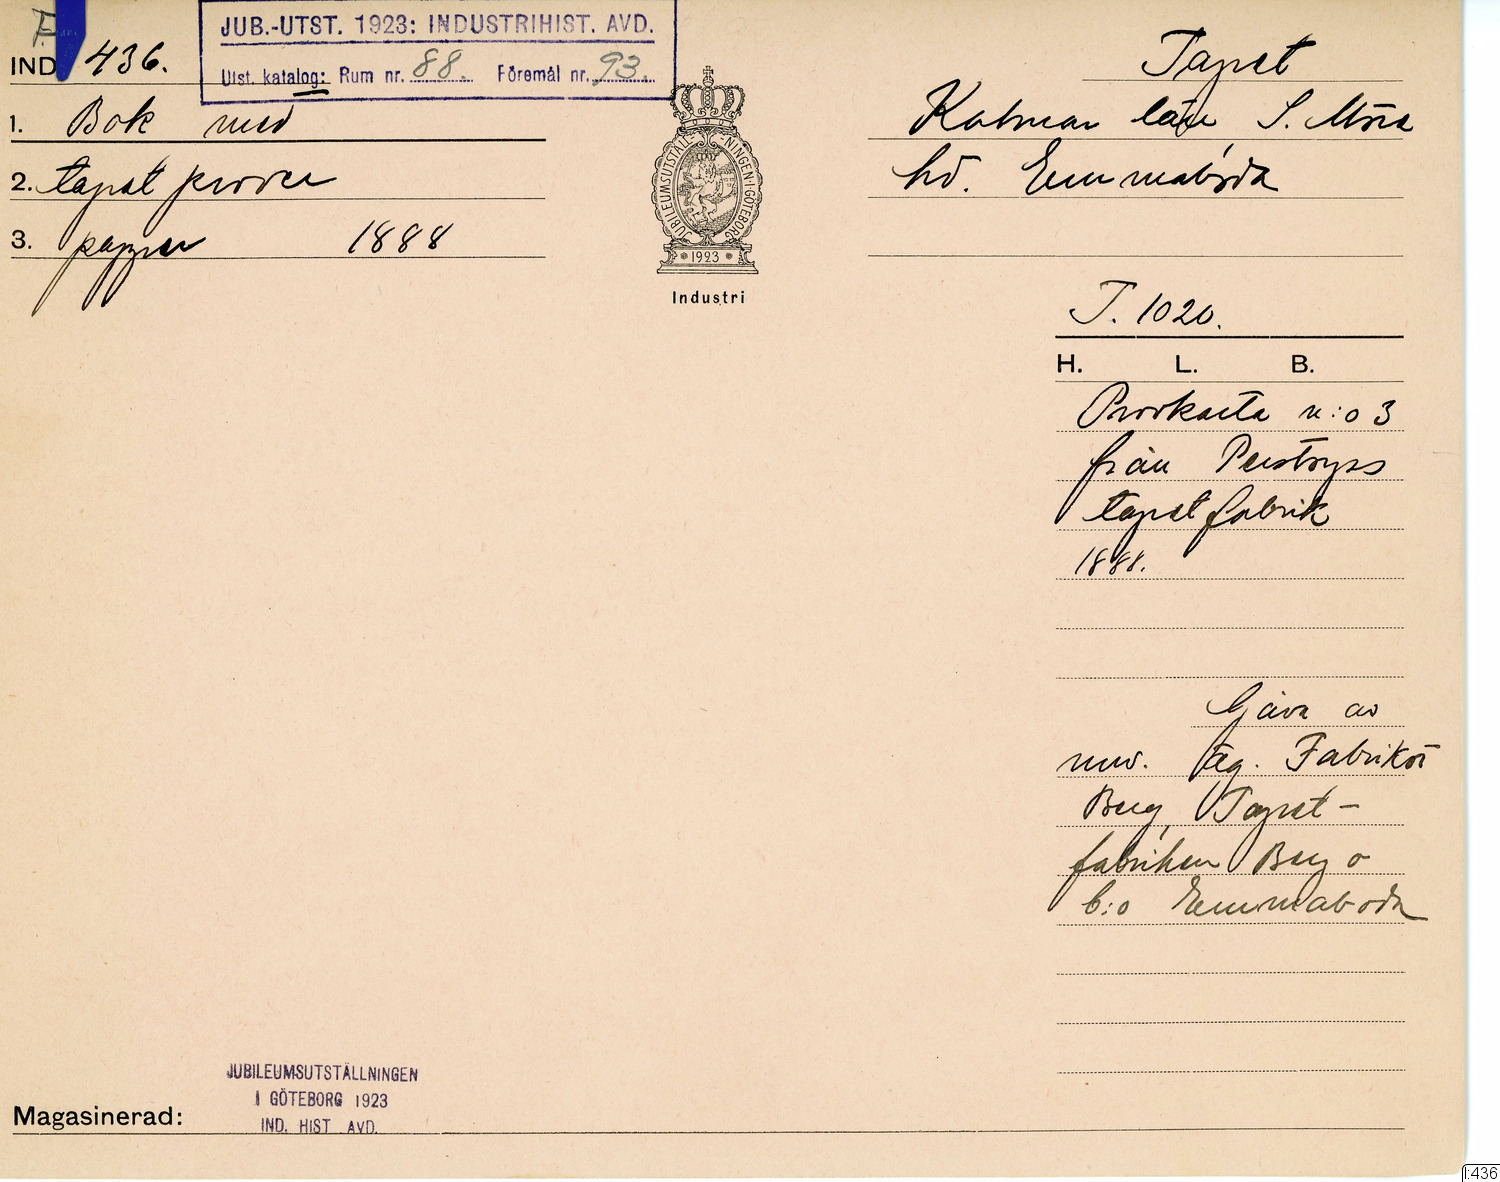 F.
IND 436.
JUB.-UTST. 1923: INDUSTRIHIST. AVD.
Utst. katalog: Rum nr. 88. Föremål nr. 93.
1. Bok med
2. tapet prover
3. papper 1888
JUBILEUMSUTSTÄLLNINGEN I GÖTEBORG
1923
Industri
Tapet
Kalmar län S. Möre
hd. Emmaboda
T. 1020.
H. L. B.
Provkarta n:o 3
från Perstorps
tapetfabrik
1888.
Gåva av
nuv. äg. Fabrikör
Berg, Tapet-
fabriken Berg o
C:o Emmaboda
JUBILEUMSUTSTÄLLNINGEN
I GÖTEBORG 1923
IND. HIST AVD.
Magasinerad:
I:436